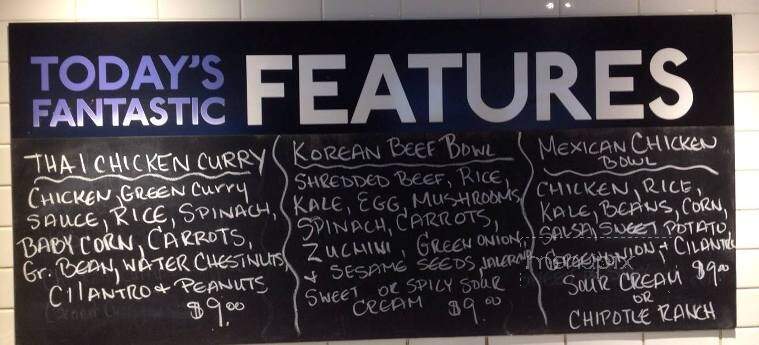 TODAY'S
FANTASTIC
FEATURES
THAI CHICKEN CURRY
CHICKEN, GREEN CURRY
SAUCE, RICE, SPINACH,
BABY CORN, CARROTS,
Gr. BEAN, WATER CHESTNUTS
CILANTRO & PEANUTS
$9.00
KOREAN BEEF BOWL
SHREDDED BEEF, RICE,
KALE, EGG, MUSHROOMS,
SPINACH, CARROTS,
ZUCHINI, GREEN ONION,
& SESAME SEEDS,
SWEET OR SPICY SOUR
CREAM $9.00
MEXICAN CHICKEN
BOWL
CHICKEN, RICE,
KALE, BEANS, CORN,
SALSA, SWEET POTATO,
GREEN ONION, + CILANTRO
SOUR CREAM $9.00
OR
CHIPOTLE RANCH